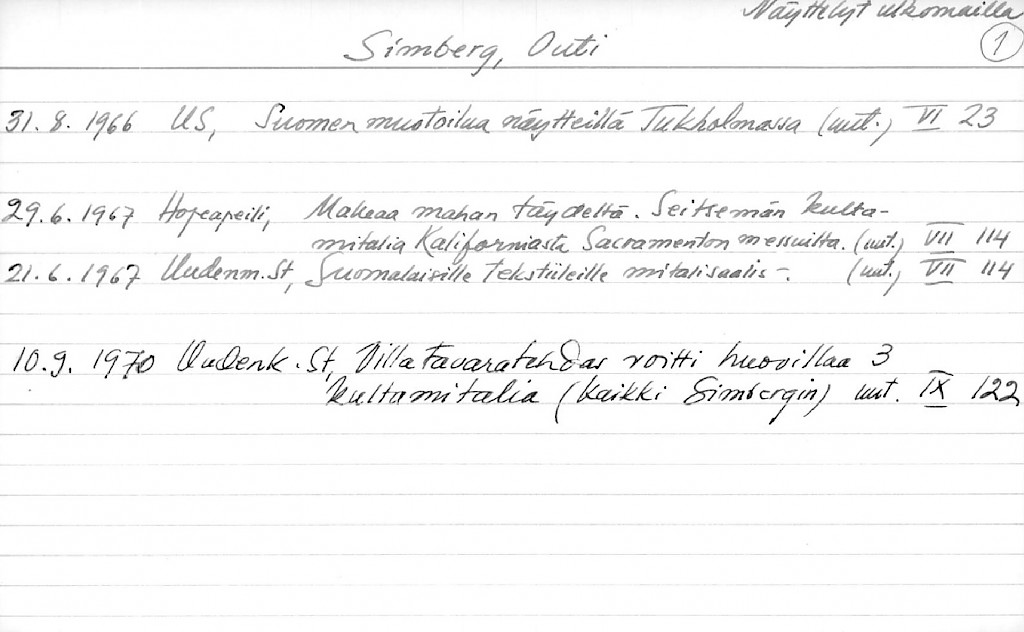 Näyttelyt ulkomailla
Simberg, Outi
1
31. 8. 1966 US, Suomen muotoilua näytteillä Tukholmassa (uut.) VI 23
29. 6. 1967 Hopeapeili, Makeaa mahan täydeltä. Seitsemän kulta-
mitalia Kaliforniasta Sacramenton messuilta. (uut.) VII 114
21. 6. 1967 Uudenm. St, Suomalaisille tekstiileille mitalisaalis -. (uut.) VII 114
10. 9. 1970 Uudenk. St, Villatavaratehdas voitti huovillaa 3
kultamitalia (kaikki Simbergin) uut. IX 122